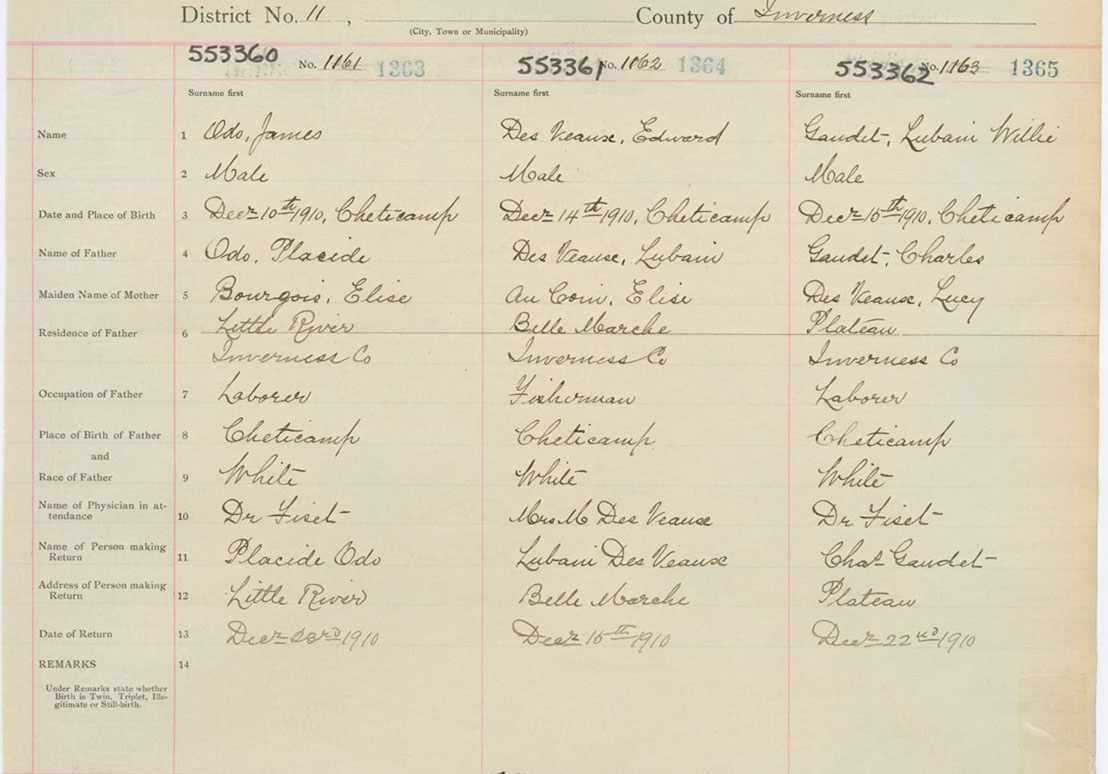 District No. 11 , County of Inverness
(City, Town or Municipality)
553360 No. 1161 1363 553361 No. 1162 1364 553362 No. 1163 1365
Surname first Surname first Surname first
Name 1 Odo, James Des Veaux, Edward Gaudet, Lubain Willie
Sex 2 Male Male Male
Date and Place of Birth 3 Decr 10th 1910, Cheticamp Decr 14th 1910, Cheticamp Decr 15th 1910, Cheticamp
Name of Father 4 Odo, Placide Des Veaux, Lubain Gaudet, Charles
Maiden Name of Mother 5 Bourgois, Elise Au Coin, Elise Des Veaux, Lucy
Residence of Father 6 Little River Belle Marche Plateau
Inverness Co Inverness Co Inverness Co
Occupation of Father 7 Laborer Fisherman Laborer
Place of Birth of Father 8 Cheticamp Cheticamp Cheticamp
and
Race of Father 9 White White White
Name of Physician in at-
tendance 10 Dr Fiset Mrs M Des Veaux Dr Fiset
Name of Person making
Return 11 Placide Odo Lubain Des Veaux Chas Gaudet
Address of Person making
Return 12 Little River Belle Marche Plateau
Date of Return 13 Decr 23rd 1910 Decr 15th 1910 Decr 22nd 1910
REMARKS 14
Under Remarks state whether
Birth is Twin, Triplet, Ille-
gitimate or Still-birth.